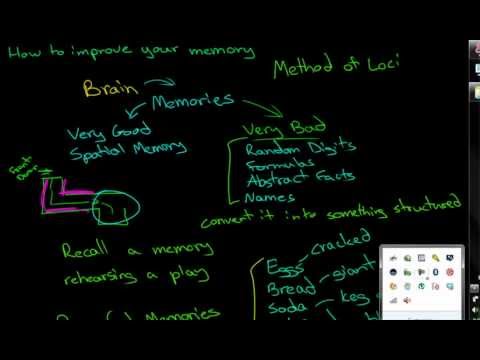 How to improve your memory
Method of Loci
Brain
Memories
Very Good
Spatial Memory
Very Bad
Random Digits
Formulas
Abstract Facts
Names
Front
Door
convert it into something structured
Recall a memory
rehearsing a play
Eggs cracked
Bread giant
Soda keg
Memories